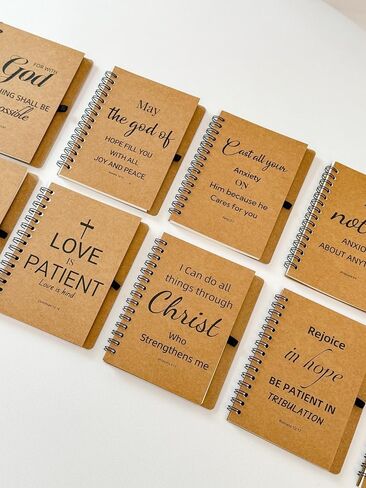 FOR WITH
God
THING SHALL BE
possible
May
the god of
HOPE FILL YOU
WITH ALL
JOY AND PEACE
Cast all your
Anxiety
ON
Him because he
Cares for you
not
ANXIO
ABOUT ANYT
LOVE
IS
PATIENT
Love is kind
I Can do all
things through
Christ
Who
Strengthens me
Rejoice
in hope
BE PATIENT IN
TRIBULATION
Romans 12:12